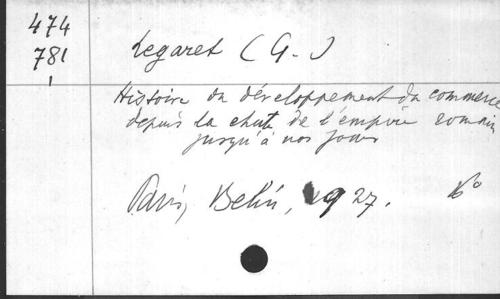 474
781
Legaret (G.)
Histoire du développement du commerce
depuis la chute de l'empire romain
jusqu'à nos jours
Paris, Belin, 1927.